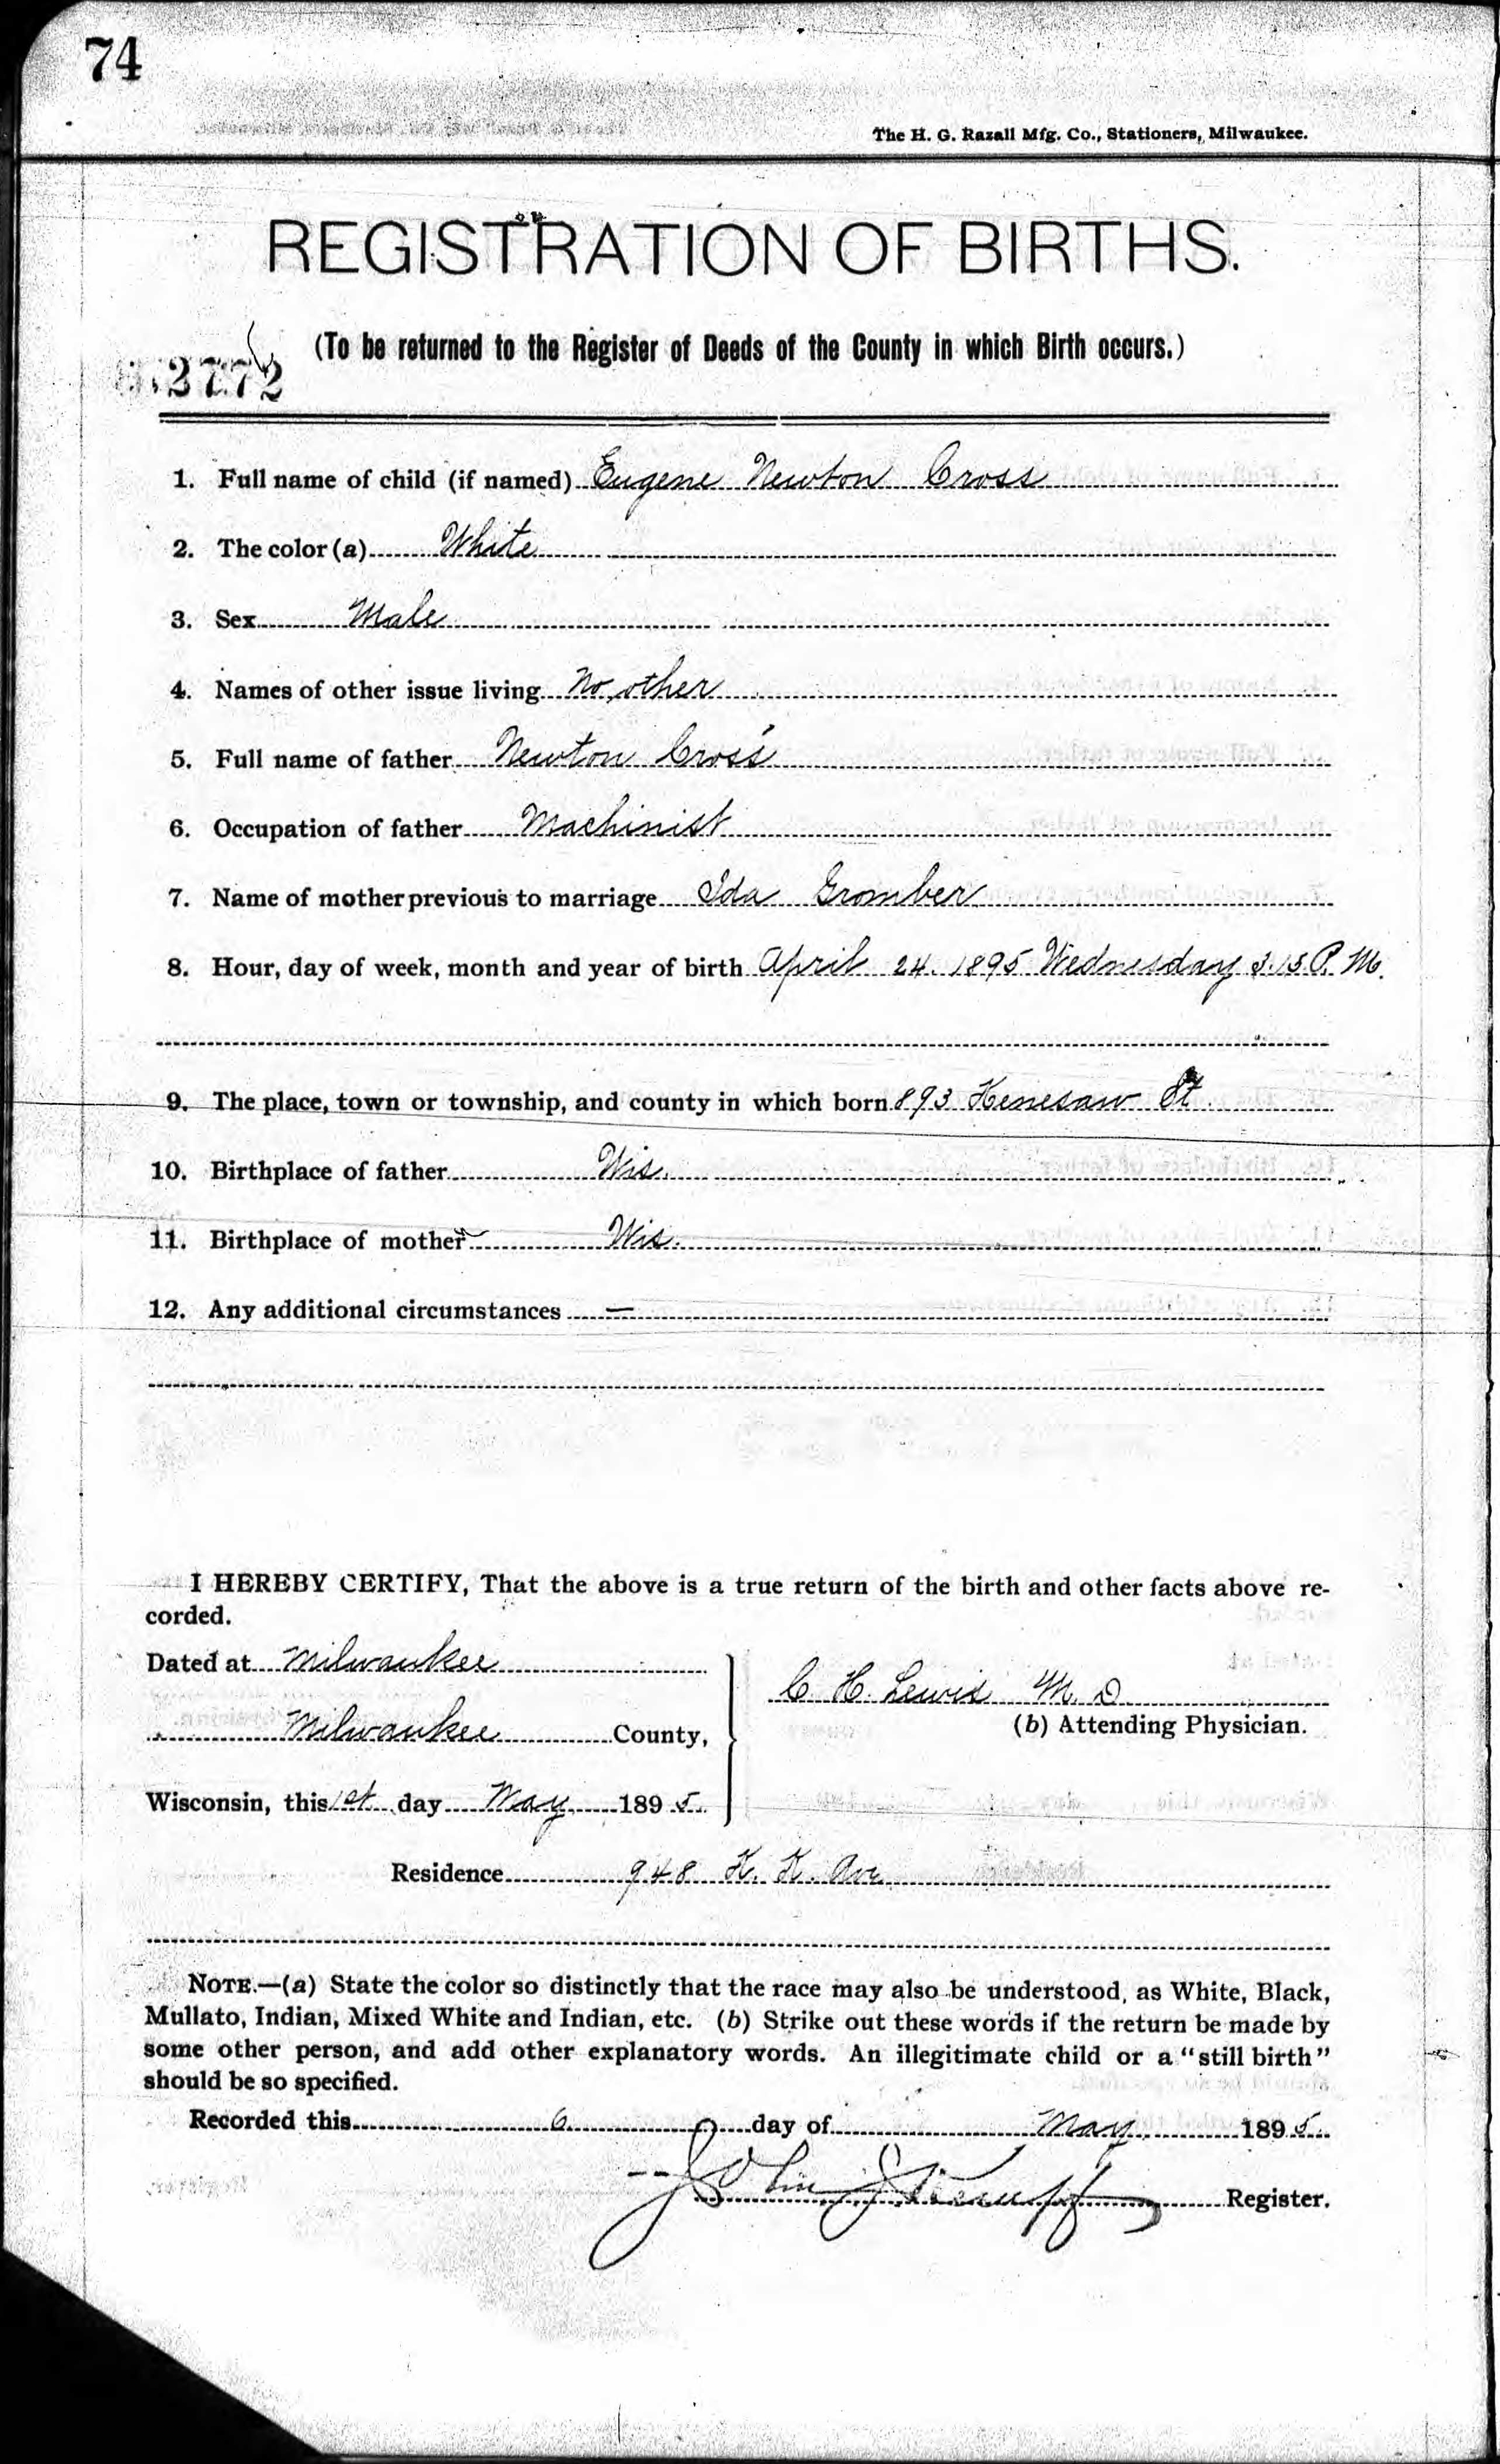 74
The H. G. Razall Mfg. Co., Stationers, Milwaukee.
REGISTRATION OF BIRTHS.
(To be returned to the Register of Deeds of the County in which Birth occurs.)
2772
1. Full name of child (if named) Eugene Newton Cross
2. The color (a) White
3. Sex Male
4. Names of other issue living No other
5. Full name of father Newton Cross
6. Occupation of father Machinist
7. Name of mother previous to marriage Ida Gromber
8. Hour, day of week, month and year of birth April 24. 1895 Wednesday 3.15 P. M.
9. The place, town or township, and county in which born 893 Kenesaw St
10. Birthplace of father Wis.
11. Birthplace of mother Wis.
12. Any additional circumstances —
I HEREBY CERTIFY, That the above is a true return of the birth and other facts above re-
corded.
Dated at Milwaukee
C H. Lewis M. D
(b) Attending Physician.
Milwaukee County,
Wisconsin, this 1st day May 1895.
Residence 948 K. K. Ave
NOTE.—(a) State the color so distinctly that the race may also be understood, as White, Black,
Mullato, Indian, Mixed White and Indian, etc. (b) Strike out these words if the return be made by
some other person, and add other explanatory words. An illegitimate child or a "still birth"
should be so specified.
Recorded this 6 day of May 1895.
John Register.